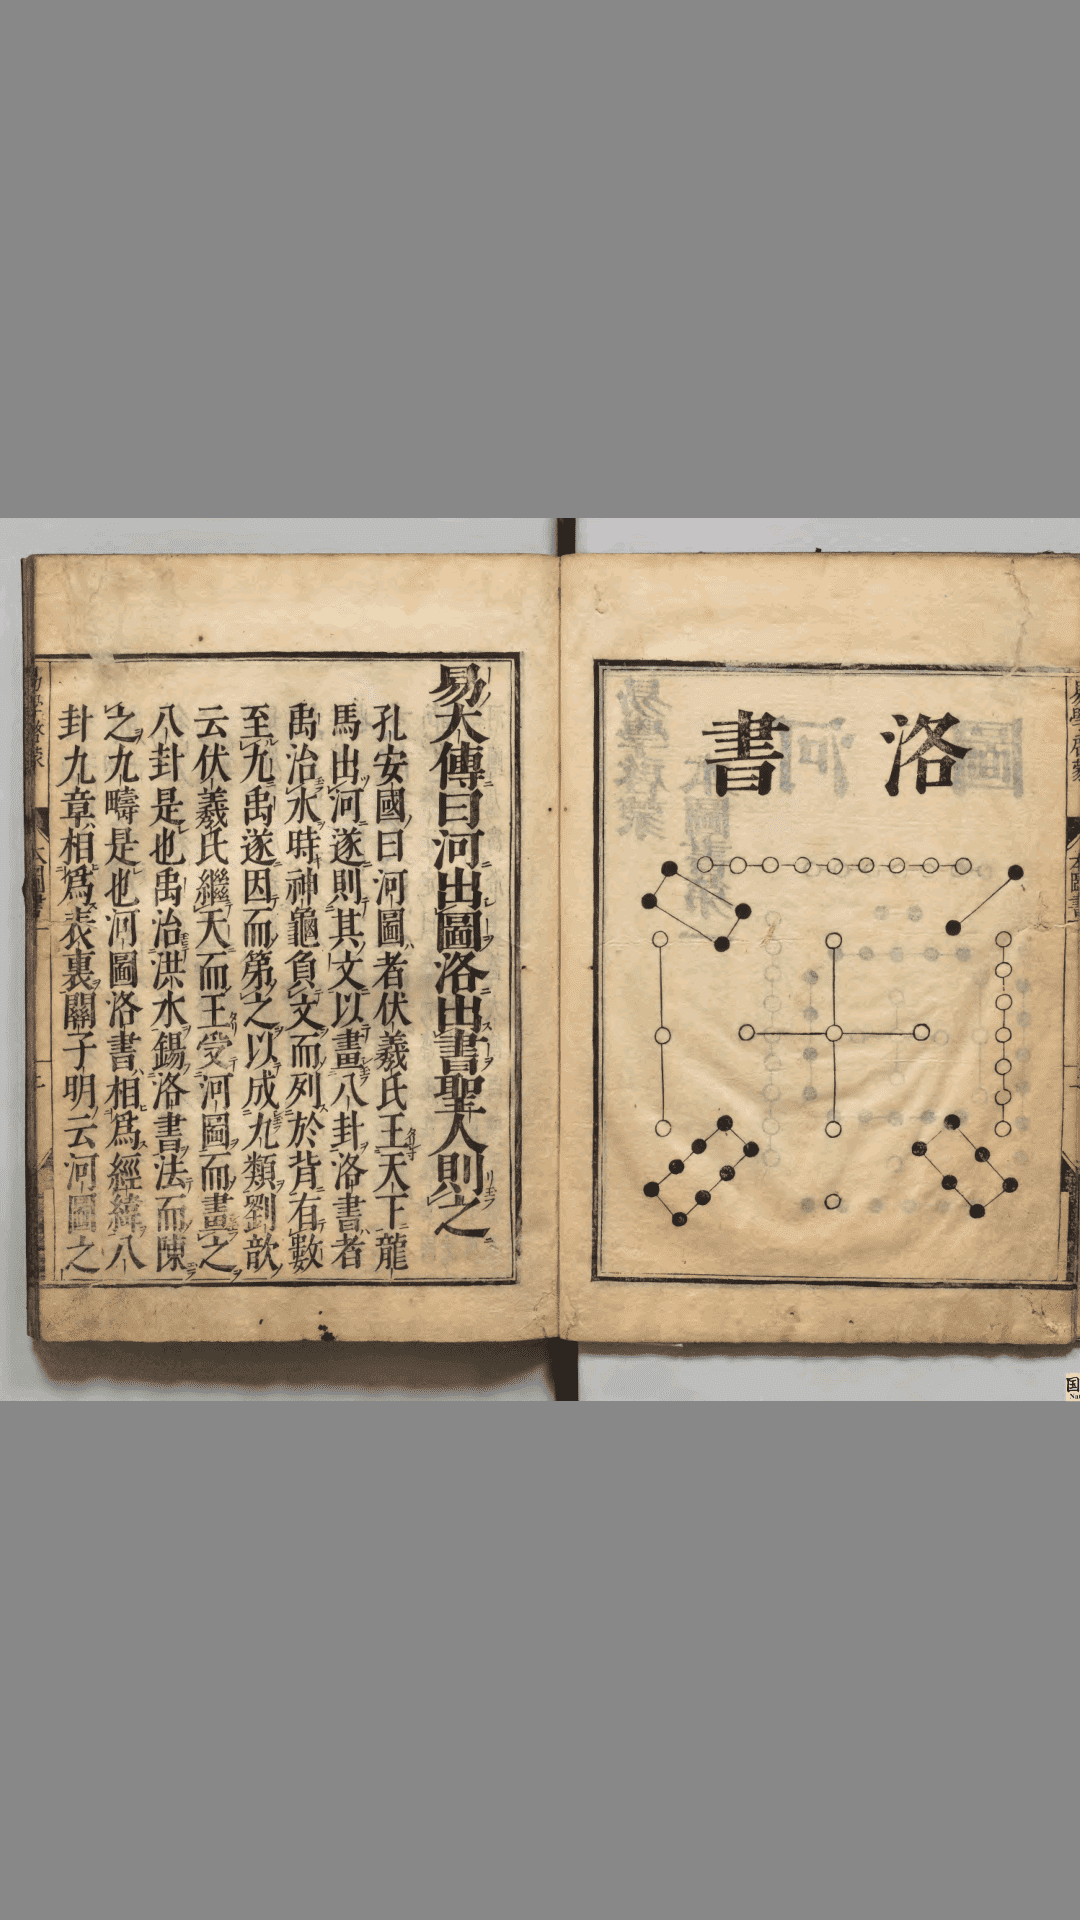 洛書
易大傳曰河出圖洛出書聖人則之
孔安國曰河圖者伏羲氏王天下龍
馬出河遂則其文以畫八卦洛書者
禹治水時神龜負文而列於背有數
至九禹遂因而第之以成九類劉歆
云伏羲氏繼天而王受河圖而畫之
八卦是也禹治洪水錫洛書法而陳
之九疇是也河圖洛書相爲經緯八
卦九章相爲表裏關子明云河圖之
国